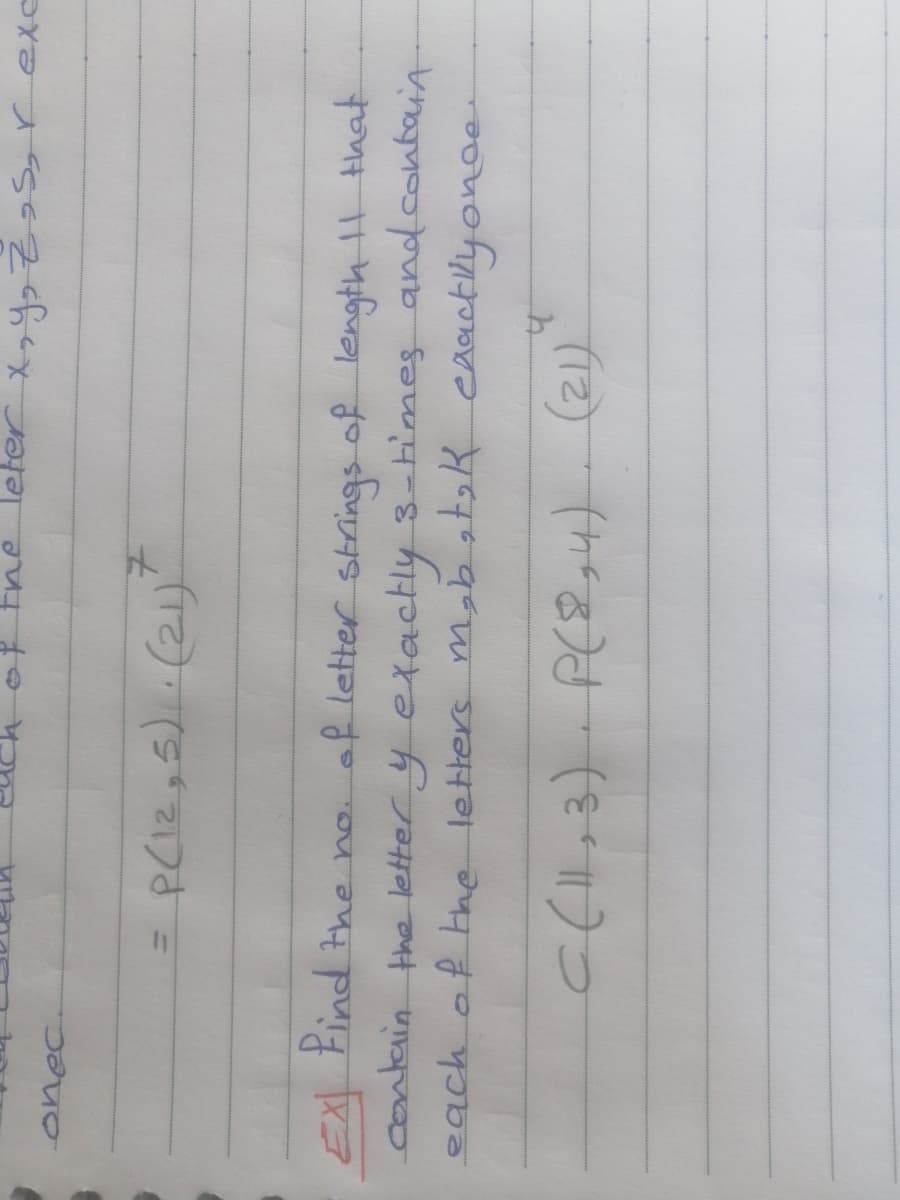 each of the leter x, y, z, s, r
onec.
= P(12,5) . (21)^7
EX| Find the no. of letter strings of length 11 that
contain the letter y exactly 3-times and contain
each of the letters m, b, t, K exactlly once.
C(11,3) . P(8,4) . (21)^4